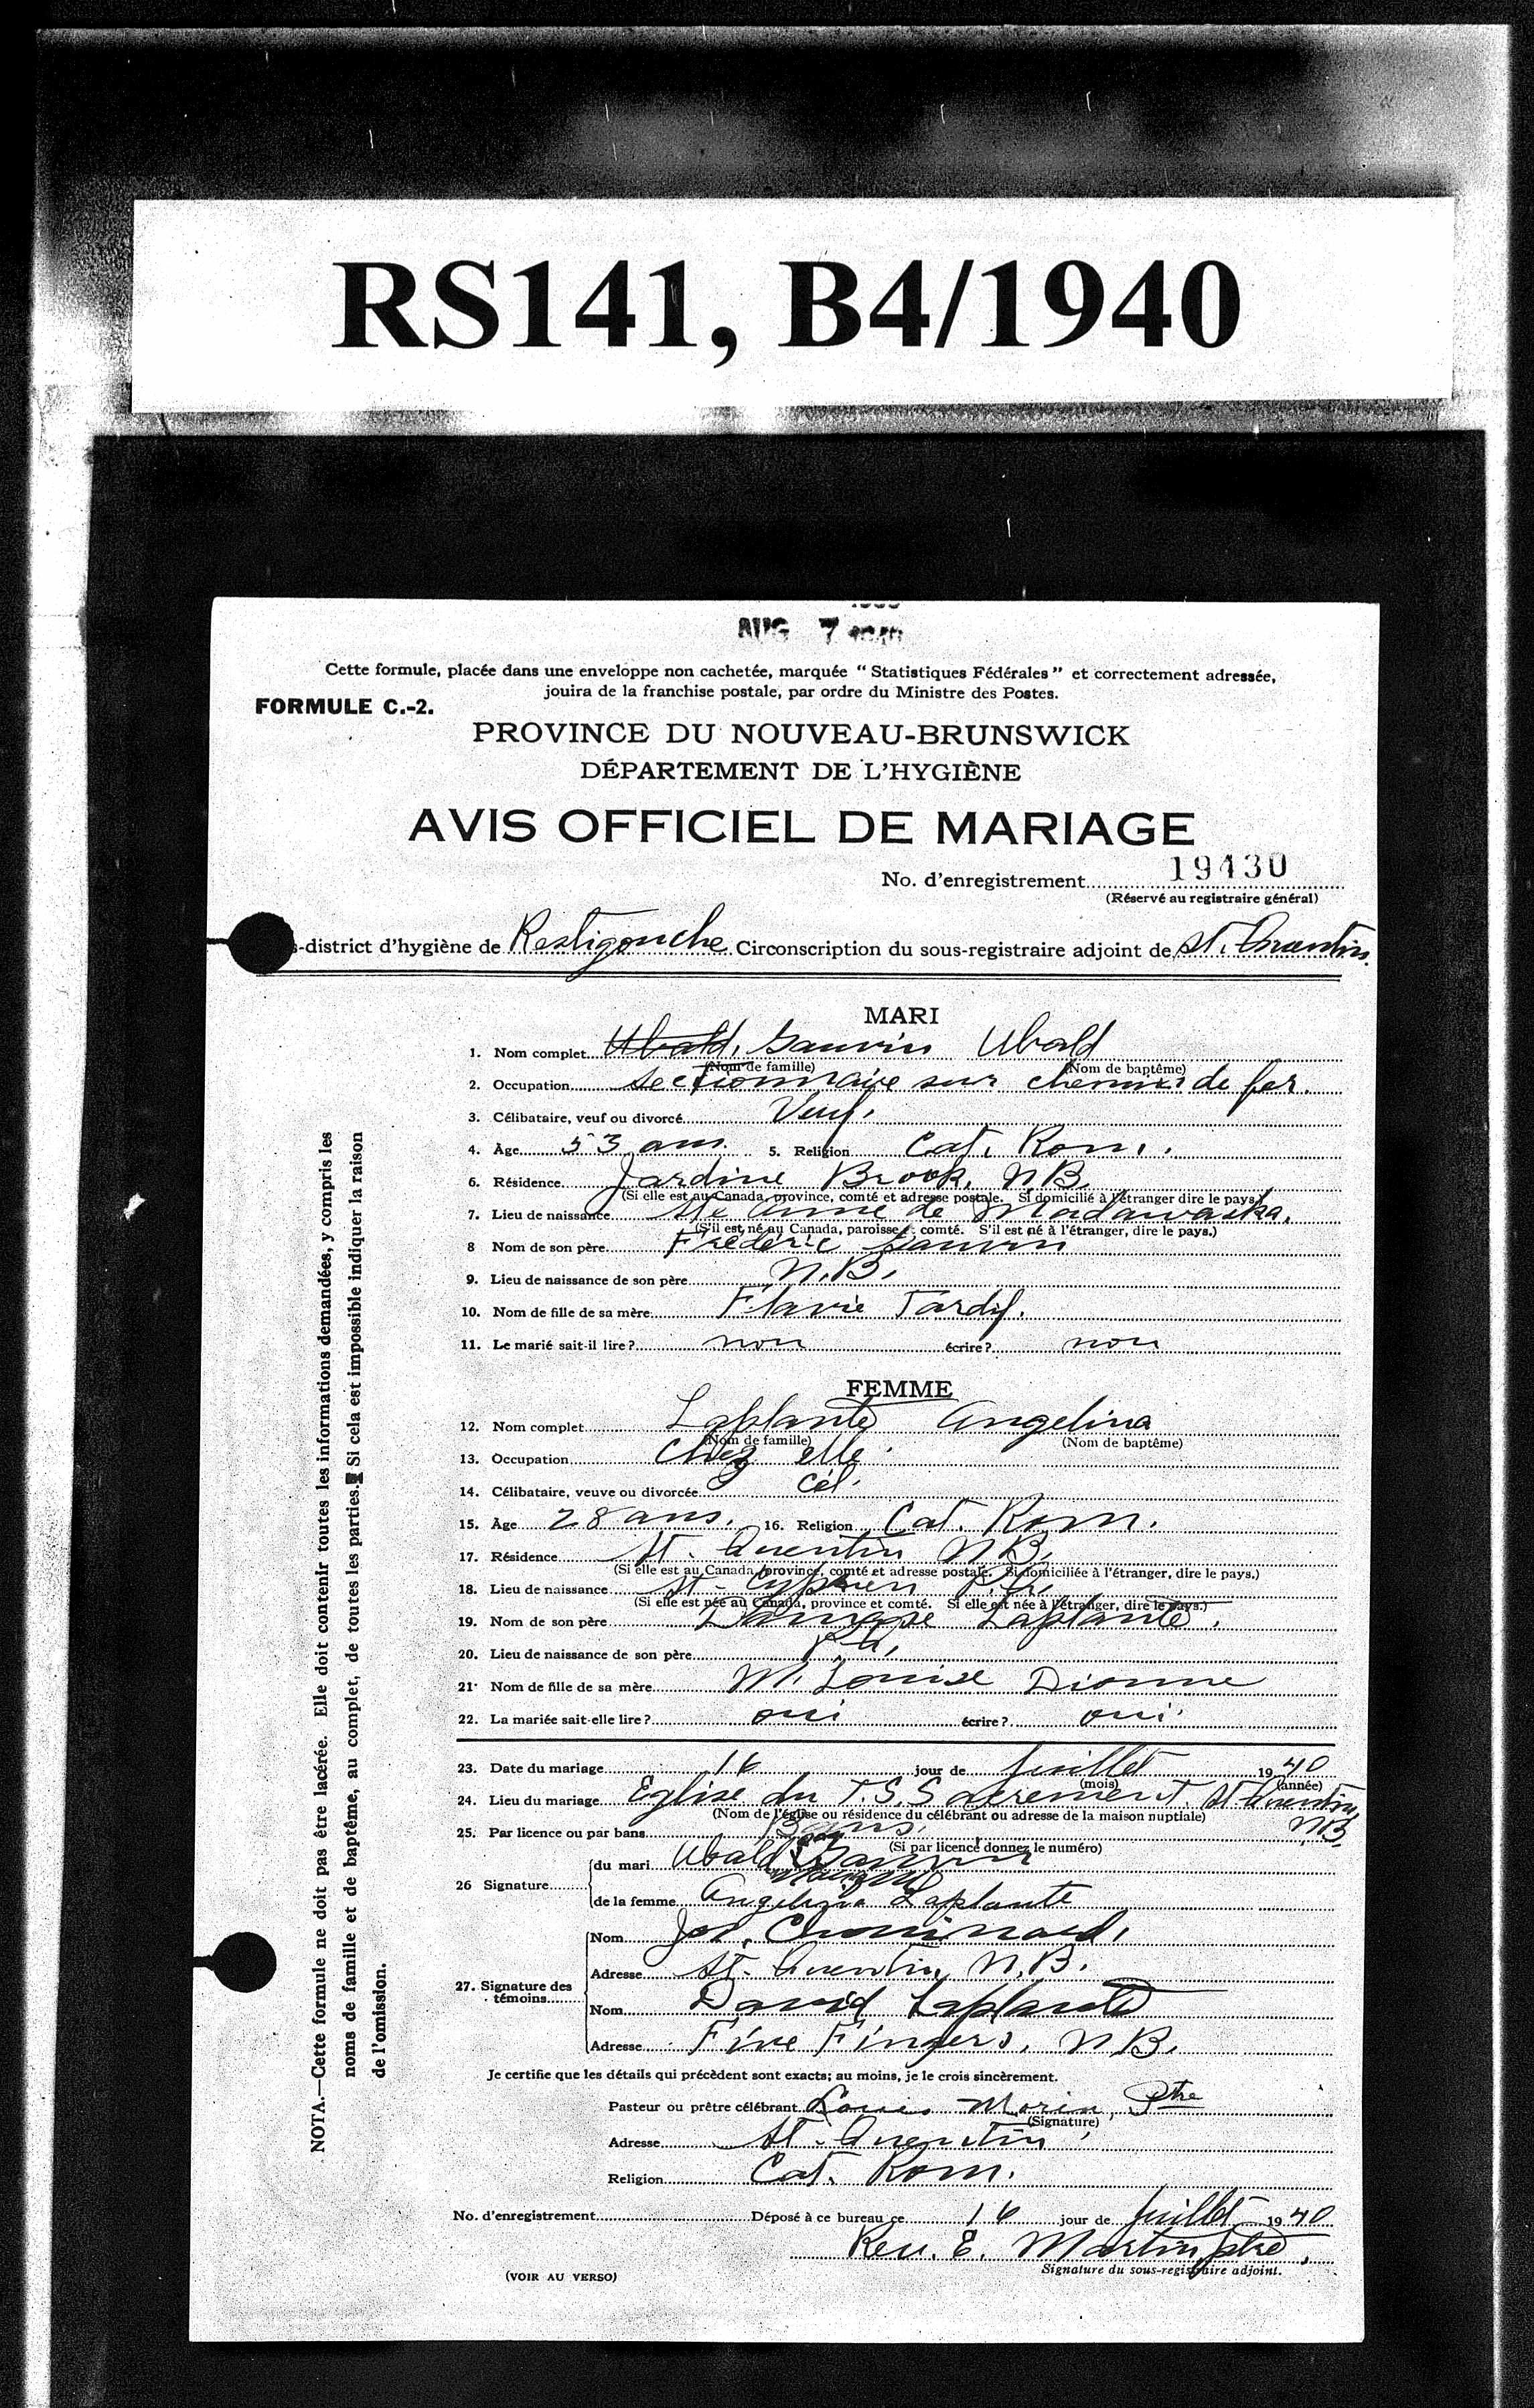 RS141, B4/1940
AUG 7 1940
Cette formule, placée dans une enveloppe non cachetée, marquée “ Statistiques Fédérales ” et correctement adressée,
jouira de la franchise postale, par ordre du Ministre des Postes.
FORMULE C.-2.
PROVINCE DU NOUVEAU-BRUNSWICK
DÉPARTEMENT DE L'HYGIÈNE
AVIS OFFICIEL DE MARIAGE
No. d'enregistrement 19430
(Réservé au registraire général)
s-district d'hygiène de Restigouche Circonscription du sous-registraire adjoint de St. Quentin.
MARI
1. Nom complet Ubald, Gauvin Ubald
(Nom de famille) (Nom de baptême)
2. Occupation sectionnaire sur chemin de fer.
3. Célibataire, veuf ou divorcé Veuf.
4. Âge 53 ans. 5. Religion Cat. Rom.
6. Résidence Jardine Brook, N.B.
(Si elle est au Canada, province, comté et adresse postale. Si domicilié à l'étranger dire le pays.)
7. Lieu de naissance Ste Anne de Madawaska.
(S'il est né au Canada, paroisse et comté. S'il est né à l'étranger, dire le pays.)
8 Nom de son père Frédéric Gauvin
9. Lieu de naissance de son père N.B.
10. Nom de fille de sa mère Flavie Tardif.
11. Le marié sait-il lire? non écrire? non
FEMME
12. Nom complet Laplante Angelina
(Nom de famille) (Nom de baptême)
13. Occupation Chez elle.
14. Célibataire, veuve ou divorcée Cél.
15. Âge 28 ans. 16. Religion Cat. Rom.
17. Résidence St. Quentin N.B.
(Si elle est au Canada, province, comté et adresse postale. Si domiciliée à l'étranger, dire le pays.)
18. Lieu de naissance St-Cyprien P.Q.
(Si elle est née au Canada, province et comté. Si elle est née à l'étranger, dire le pays.)
19. Nom de son père Damase Laplante.
20. Lieu de naissance de son père P.Q.
21. Nom de fille de sa mère M. Louise Dionne
22. La mariée sait-elle lire? oui écrire? oui
23. Date du mariage 16 jour de juillet 1940
(mois) (année)
24. Lieu du mariage Eglise du T.S. Sacrement. St-Quentin,
(Nom de l'église ou résidence du célébrant ou adresse de la maison nuptiale) N.B.
25. Par licence ou par bans Bans.
(Si par licence donnez le numéro)
26 Signature du mari Ubald Gauvin
de la femme Angelina Laplante
27. Signature des témoins
Nom Jos. Chouinard,
Adresse St-Quentin, N.B.
Nom David Laplante
Adresse Five Fingers, N.B.
Je certifie que les détails qui précèdent sont exacts; au moins, je le crois sincèrement.
Pasteur ou prêtre célébrant Louis Morin, Ptre
(Signature)
Adresse St-Quentin
Religion Cat. Rom.
No. d'enregistrement Déposé à ce bureau ce 16 jour de juillet 1940
Rev. E. Martin ptre.
Signature du sous-registraire adjoint.
(VOIR AU VERSO)
NOTA.—Cette formule ne doit pas être lacérée. Elle doit contenir toutes les informations demandées, y compris les
noms de famille et de baptême, au complet, de toutes les parties. Si cela est impossible indiquer la raison
de l'omission.